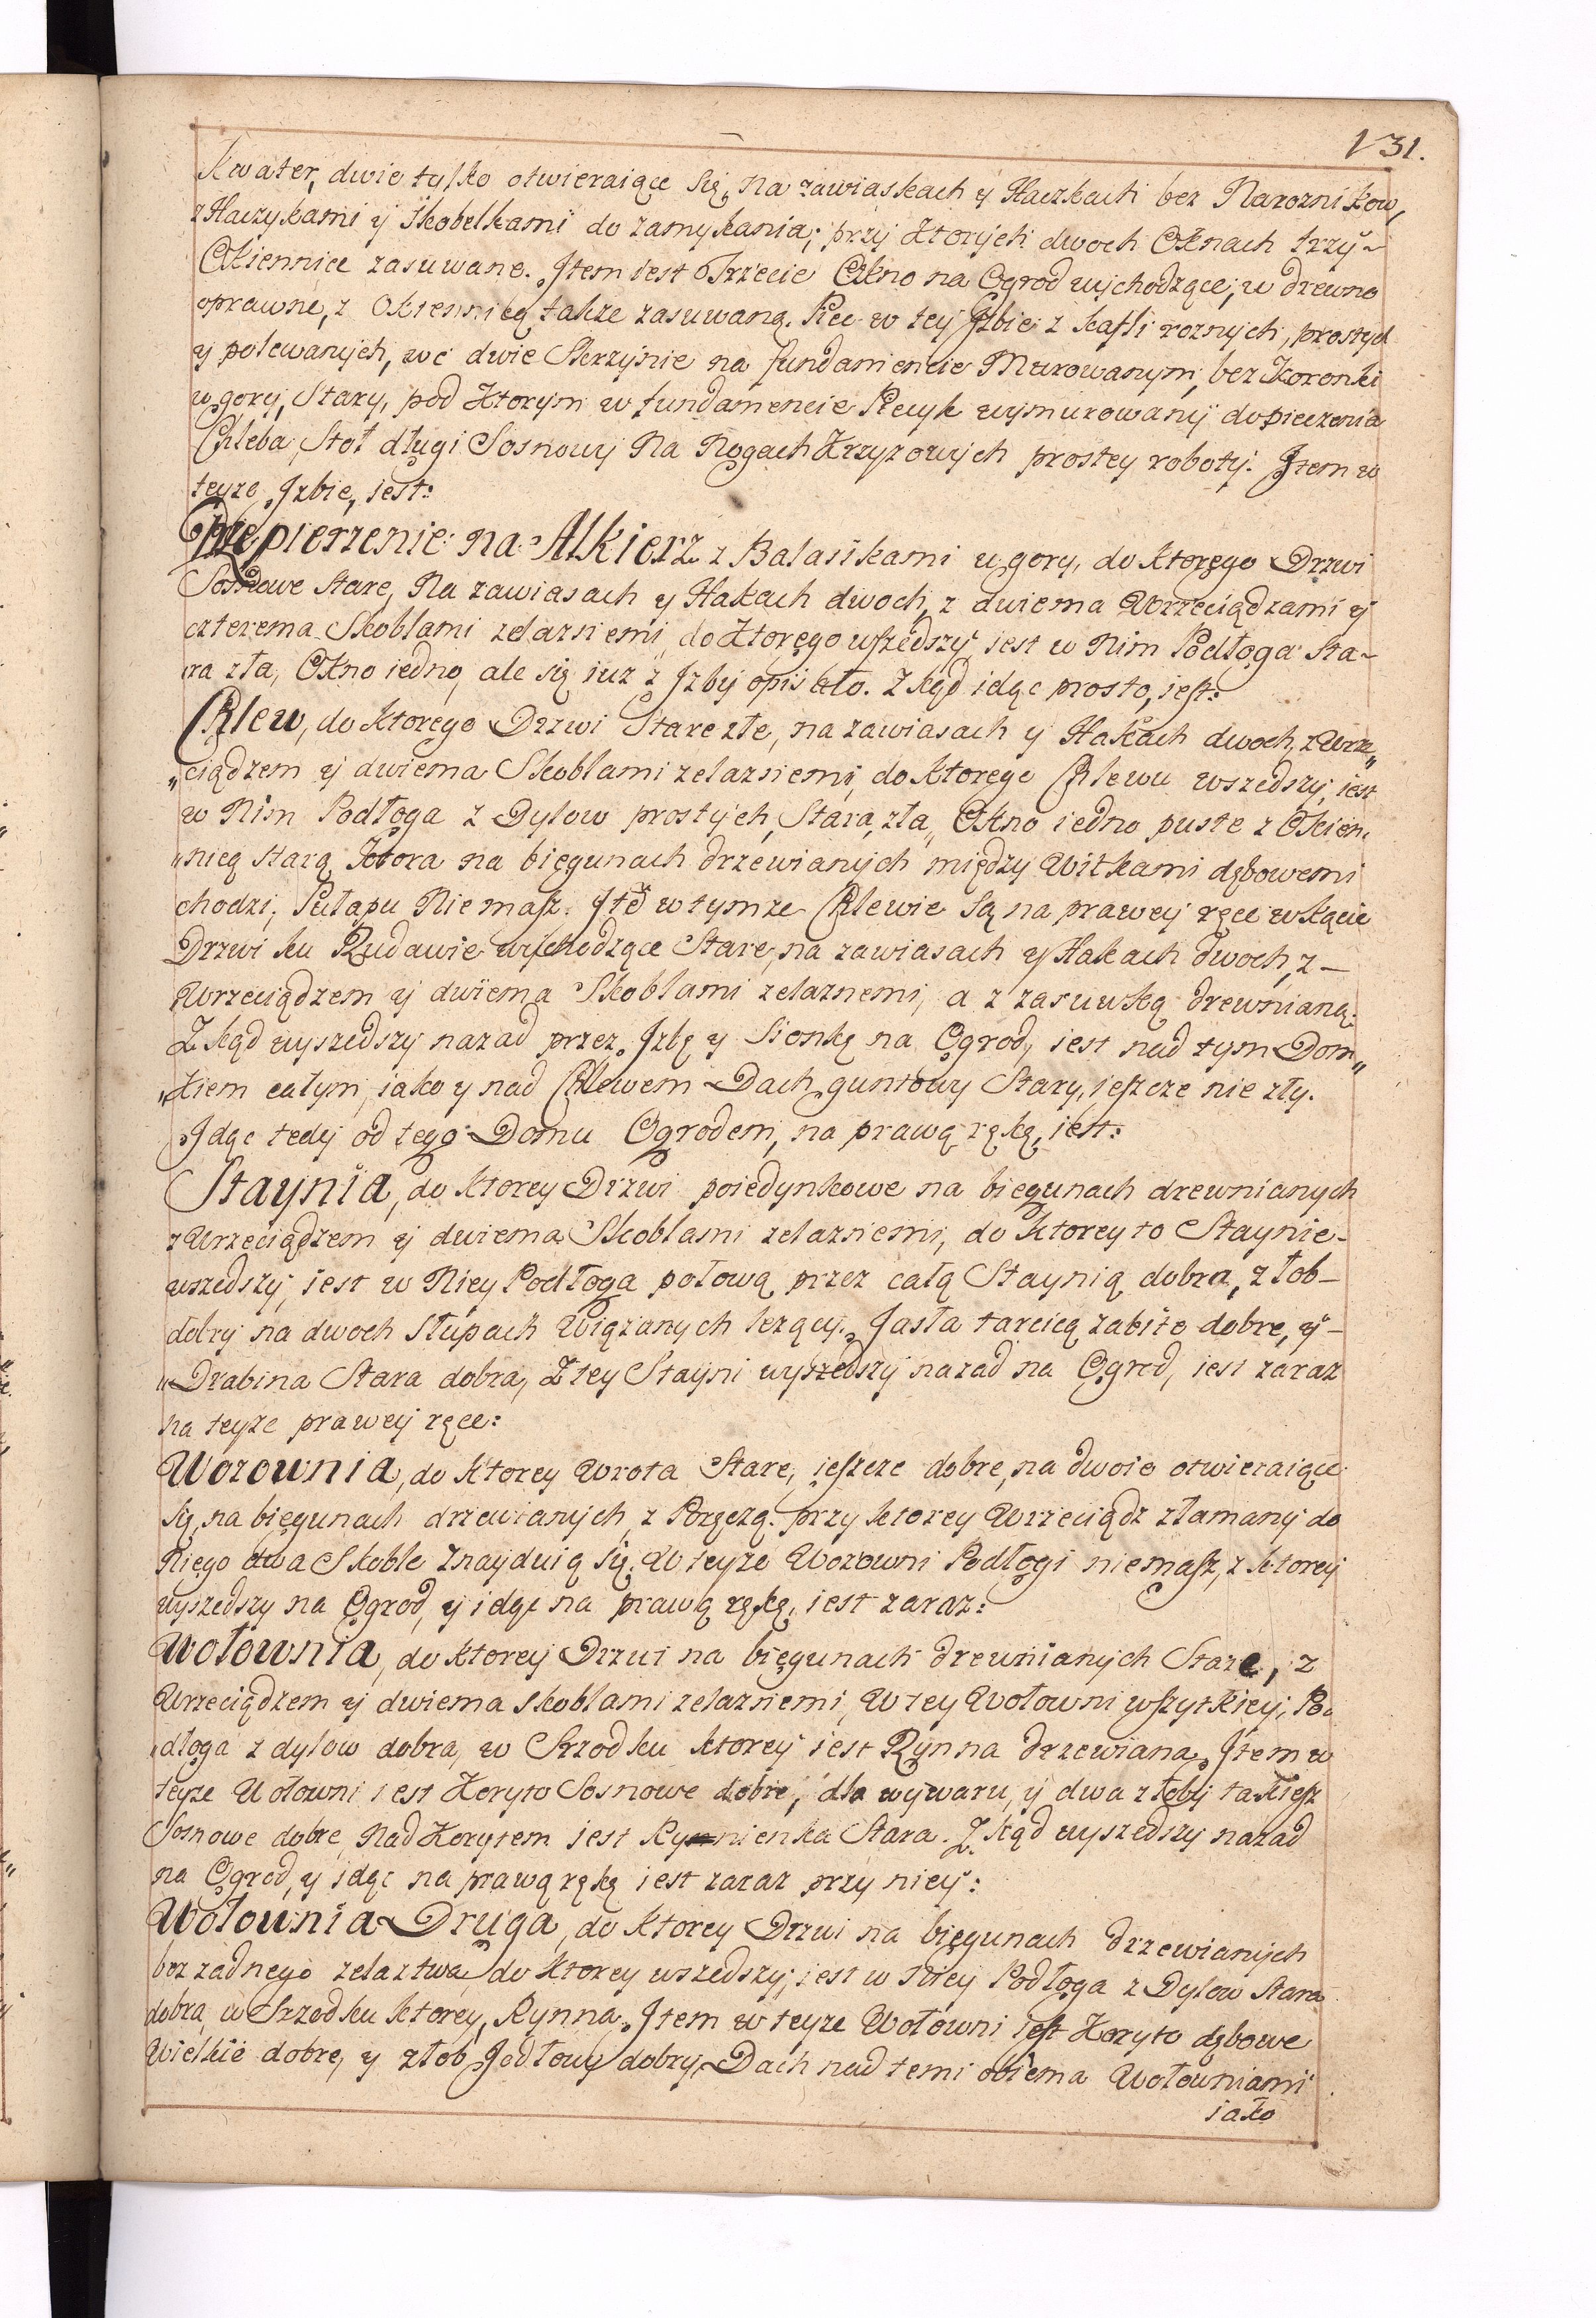 131.
Kwater, dwie tylko otwieraiące się, na zawiaskach y Haczkach bez Naroznikow,
z Haczykami y skobelkami do zamykania; przy ktorych dwoch Oknach trzy~
Okiennice zasuwane. Jtem iest Trzecie Okno na Ogrod wychodzące, w drewno
oprawne, z Okiennicą takze zasuwaną. Piec w tey Jzbie z kafli roznych, prostych
y polewanych, we dwie Skrzynie na fundamencie Murowanym, bez Koronki
w gory, Stary, pod Ktorym w fundamencie Piecyk wymurowany do pieczenia
Chleba, Stoł długi Sosnowy Na Nogach Krzyzowych prostey roboty. Jtem w
teyze Jzbie, iest:
Przepierzenie na Alkierz z Balasikami u gory, do ktorego Drzwi
Sosnowe Stare, Na zawiasach y Hakach dwoch, z dwiema Wrzeciądzami y
czterema Skoblami zelaznemi, do Ktorego wszedszy iest w Nim Podłoga Sta~
ra zła, Okno iedno, ale się iuz z Jzby opisało. Zkąd idąc prosto, iest:
Chlew, do ktorego Drzwi Stare złe, na zawiasach y Hakach dwoch, z Wrze„
„ciądzem y dwiema Skoblami zelaznemi, do ktorego Chlewu wszedszy, iest
w Nim Podłoga z Dylow prostych, Stara, zła, Okno iedno puste z Okien„
„nicą starą Ktora na biegunach drzewianych między Witkami dębowemi
chodzi, Pułapu Nie masz. Jtem w tymze Chlewie Są na prawey ręce w Kącie
Drzwi ku Rudawie wychodzące Stare, na zawiasach y Hakach dwoch, z –
Wrzeciądzem y dwiema Skoblami zelaznemi, a z zasuwką drewnianą.
Zkąd wyszedszy nazad przez Jzbę y Sionkę na Ogrod, iest nad tym Dom„
„kiem całym, iako y nad Chlewem Dach guntowy Stary, ieszcze nie zły.
Jdąc tedy od tego Domu Ogrodem, na prawą rękę, iest:
Staynia, do ktorey Drzwi poiedynkowe na biegunach drewnianych
z Wrzeciądzem y dwiema Skoblami zelaznemi, do ktorey to Staynie –
wszedszy, iest w Niey Podłoga połową przez całą Staynią dobra, złob –
dobry na dwoch Słupach Wiązanych lezący. Jasła tarcicą zabite dobre, y –
„Drabina Stara dobra, Z tey Stayni wyszedszy nazad na Ogrod, iest zaraz
na teyze prawey ręce:
Wozownia, do ktorey Wrota Stare, ieszcze dobre, na dwoie otwieraiące
się, na biegunach drzewianych, z Poręczą. przy ktorey Wrzeciądz złamany do
Niego dwa Skoble Znayduią się. W teyze Wozowni Podłogi niemasz, z ktorey
wyszedszy na Ogrod, y idąc na prawą rękę, iest zaraz:
Wołownia, do ktorey Drzwi na biegunach drewnianych Stare, z
Wrzeciądzem y dwiema skoblami zelaznemi, W tey Wołowni wszytkiey, Po„
„dłoga z dylow dobra, w Srzodku ktorey iest Rynna drzewiana. Jtem w
teyze Wołowni iest Koryto Sosnowe dobre, dla wywaru, y dwa złoby takiesz
Sosnowe dobre, Nad Korytem iest Rynnienka Stara. Zkąd wyszedszy nazad
na Ogrod, y idąc na prawą rękę iest zaraz przy niey:
Wołownia Druga, do ktorey Drzwi na biegunach drzewianych
bez zadnego zelaztwa, do Ktorey wszedszy, iest w Niey Podłoga z Dylow Stara
dobra, w Srzodku ktorey, Rynna. Jtem w teyze Wołowni iest Koryto dębowe
Wielkie dobre, y złob Jodłowy dobry, Dach nad temi obiema Wołowniami
iako